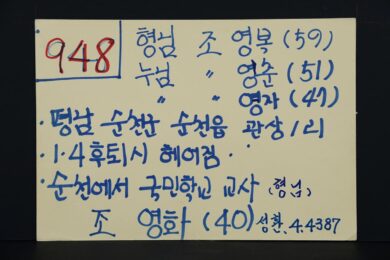 948
형님 조 영복 (59)
누님 〃 영순 (51)
〃 〃 영자 (47)
· 평남 순천군 순천읍 관상 1리
· 1·4 후퇴시 헤어짐 ·
· 순천에서 국민학교 교사 (형님)
조 영화 (40) 성환. 4.4387